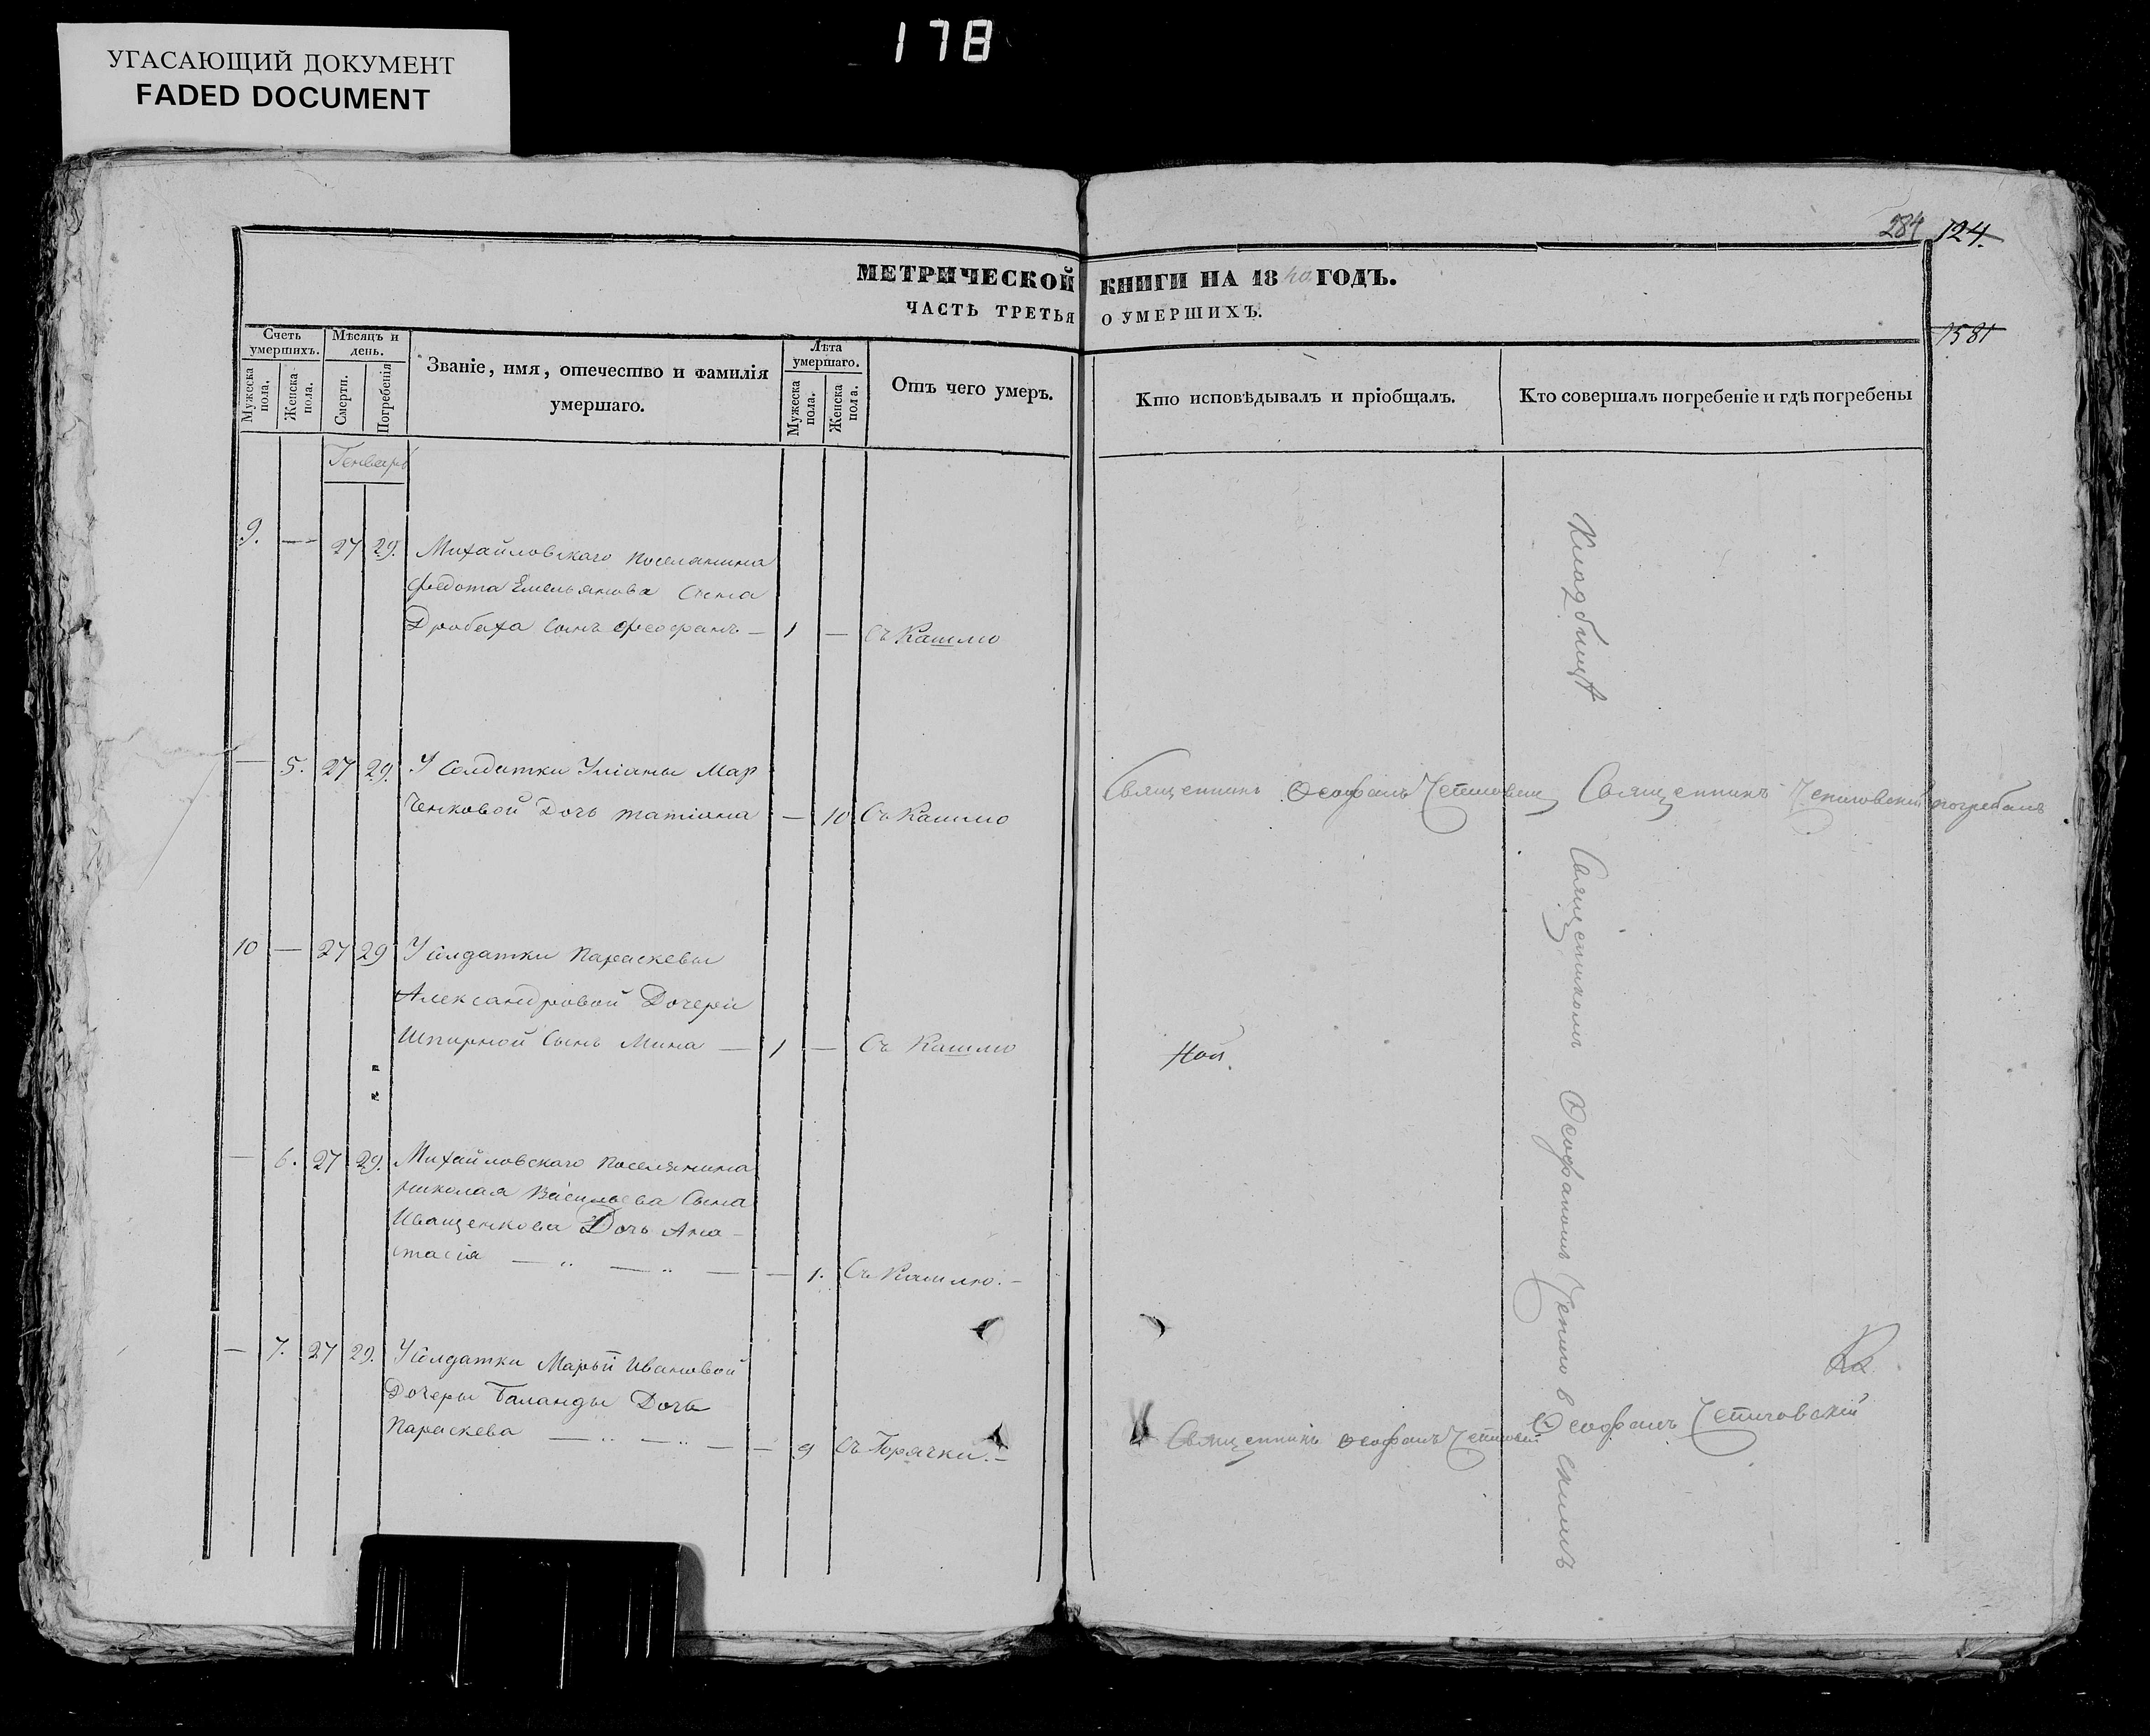 178
УГАСАЮЩИЙ ДОКУМЕНТ
FADED DOCUMENT
284 124.
МЕТРИЧЕСКОЙ КНИГИ НА 1840 ГОДЪ.
ЧАСТЬ ТРЕТЬЯ О УМЕРШИХЪ.
1581
Счетъ умершихъ.
Мужеска пола.
Женска пола.
Мѣсяцъ и день.
Смерти.
Погребенія
Званіе, имя, отечество и фамилія
умершаго.
Лѣта умершаго.
Мужеска пола.
Женска пола.
Отъ чего умеръ.
Кто исповѣдывалъ и пріобщалъ.
Кто совершалъ погребеніе и гдѣ погребены
Генварь
9. — 27 29. Михайловскаго поселянина
Федота Емельянова Сына
Дробаха Сынъ Феофанъ — 1 — Съ Кашлю
— 5. 27 29. У Солдатки Уліаны Мар
ченковой Дочь татіана — 10 Съ Кашлю
Священникъ Ѳеофанъ
Священникъ погребалъ
10 — 27 29 У Солдатки Параскевы
Александровой Дочери
Шпирной Сынъ Мина — 1 — Съ Кашлю
— 6. 27 29. Михайловскаго поселянина
Николая Васильева Сына
Иващенкова Дочь Ана-
стасія — „ — „ — — 1. Съ Кашлю. —
— 7. 27 29. У Солдатки Марьи Ивановой
Дочеры Баланды Дочь
Параскева — „ — „ — — 9 Съ Горячки. —
Священникъ Ѳеофанъ
Ѳеофанъ
Кладбищѣ
Священникомъ Ѳеофаномъ